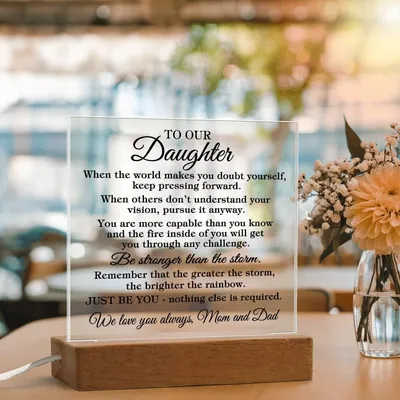 TO OUR
Daughter
When the world makes you doubt yourself,
keep pressing forward.
When others don't understand your
vision, pursue it anyway.
You are more capable than you know
and the fire inside of you will get
you through any challenge.
Be stronger than the storm.
Remember that the greater the storm,
the brighter the rainbow.
JUST BE YOU - nothing else is required.
We love you always, Mom and Dad